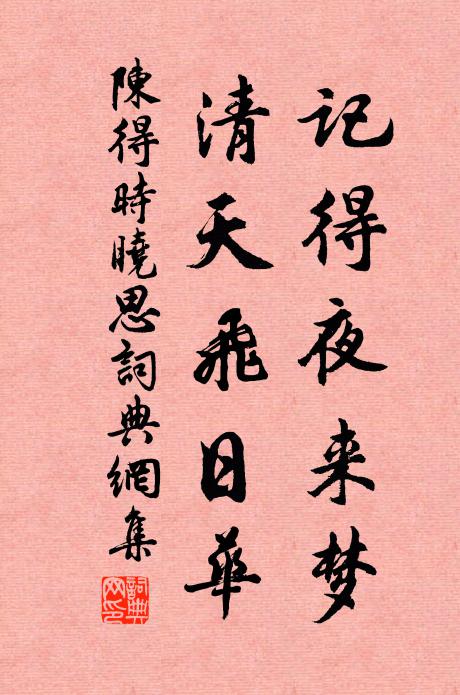 记得夜来梦
清天飛日華
陳得時曉思詞典網集
詞典網印